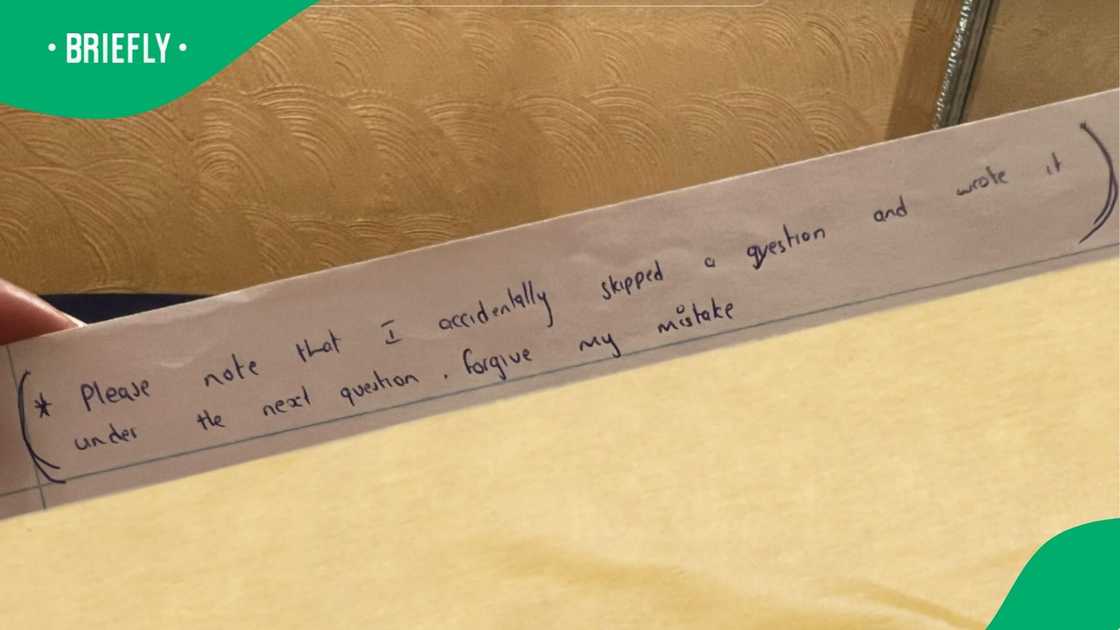 • BRIEFLY •
(* Please note that I accidentally skipped a question and wrote it
under the next question. Forgive my mistake)